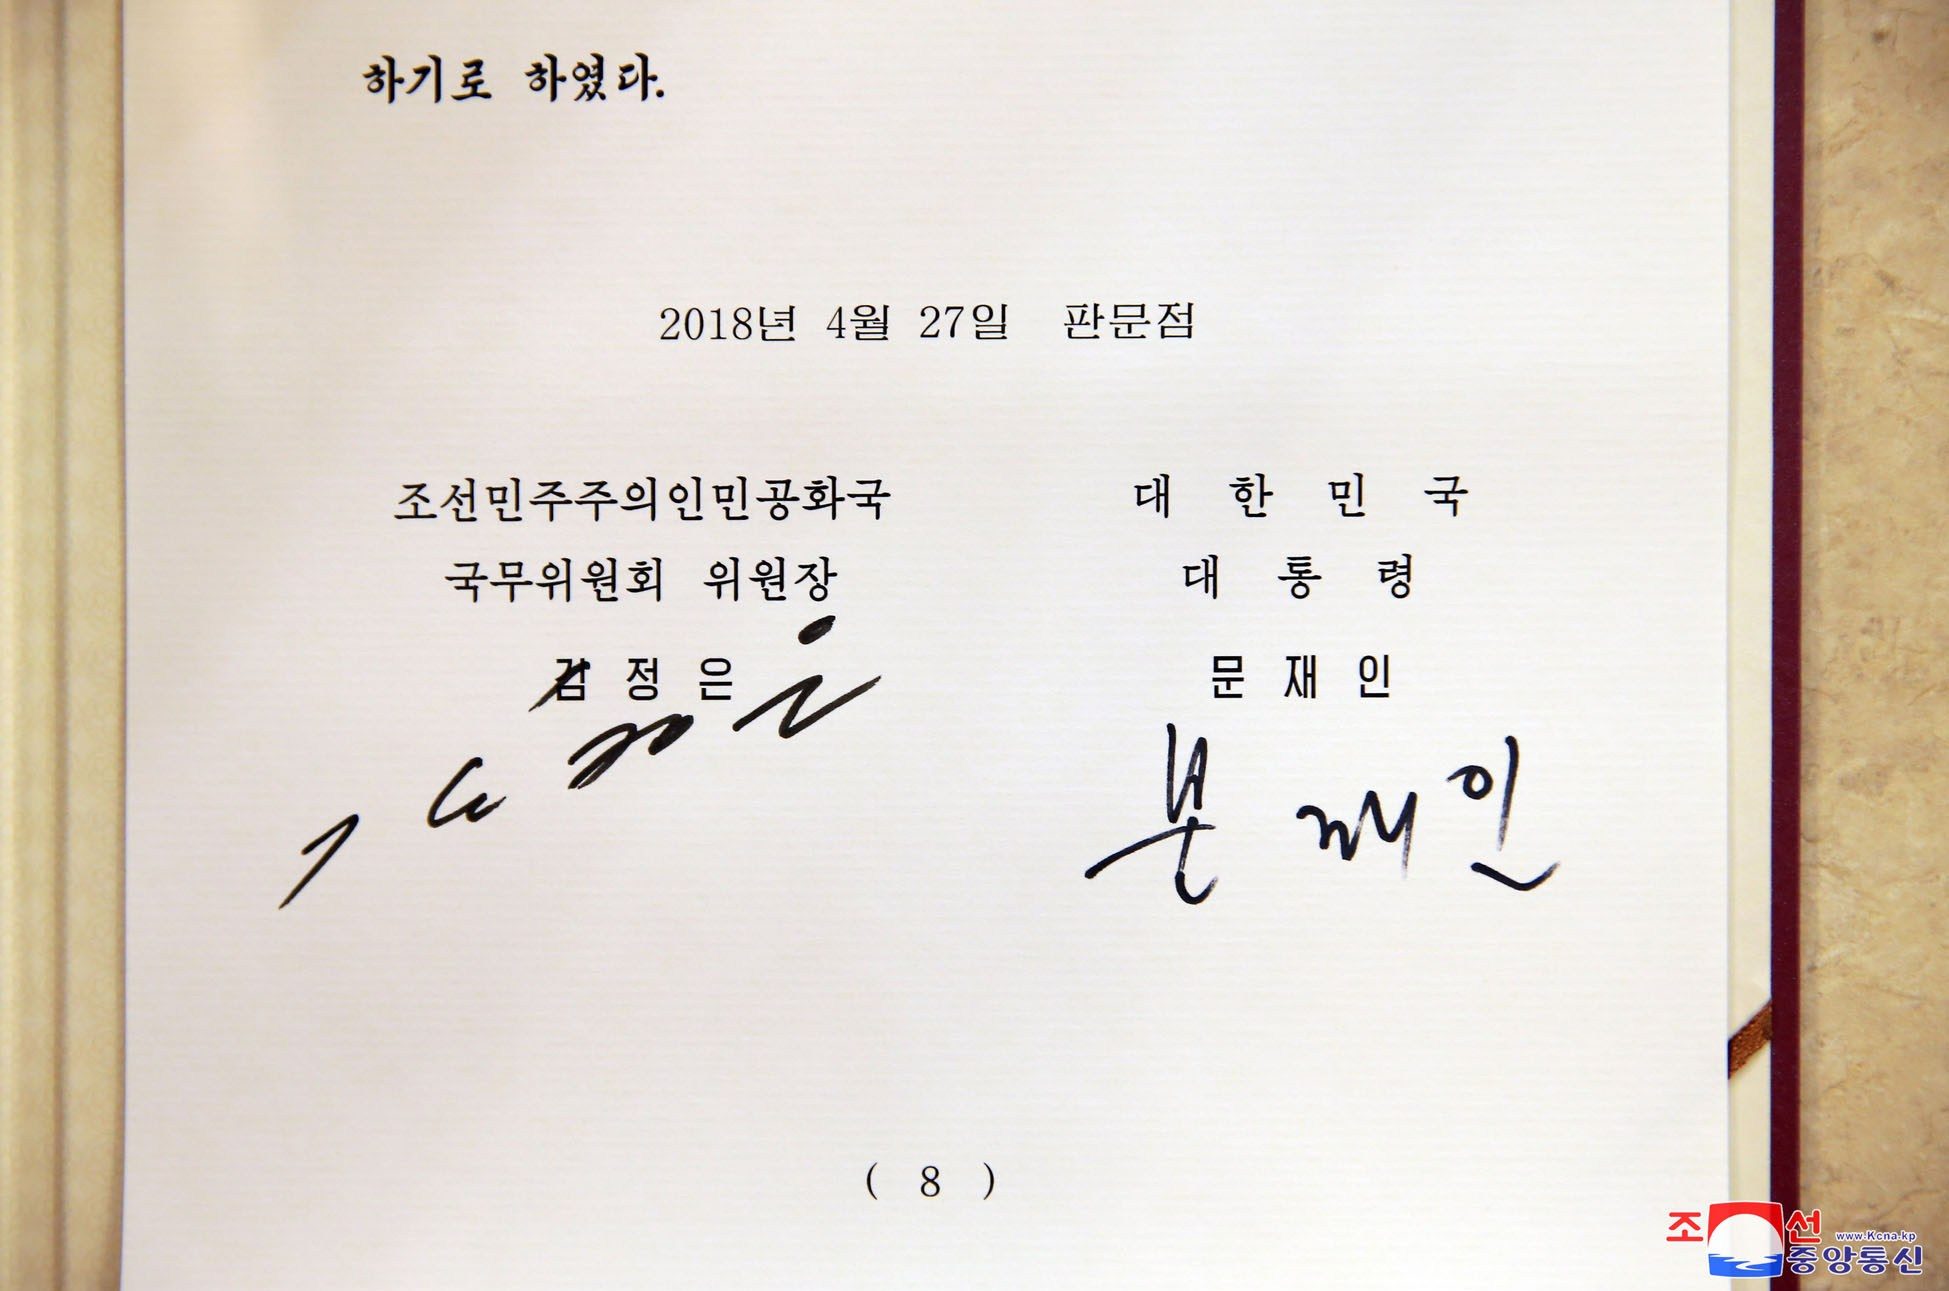 하기로 하였다.
2018년 4월 27일 판문점
조선민주주의인민공화국 대 한 민 국
국무위원회 위원장 대 통 령
김 정 은 문 재 인
문 재인
( 8 )
조선 www.Kcna.kp
중앙통신